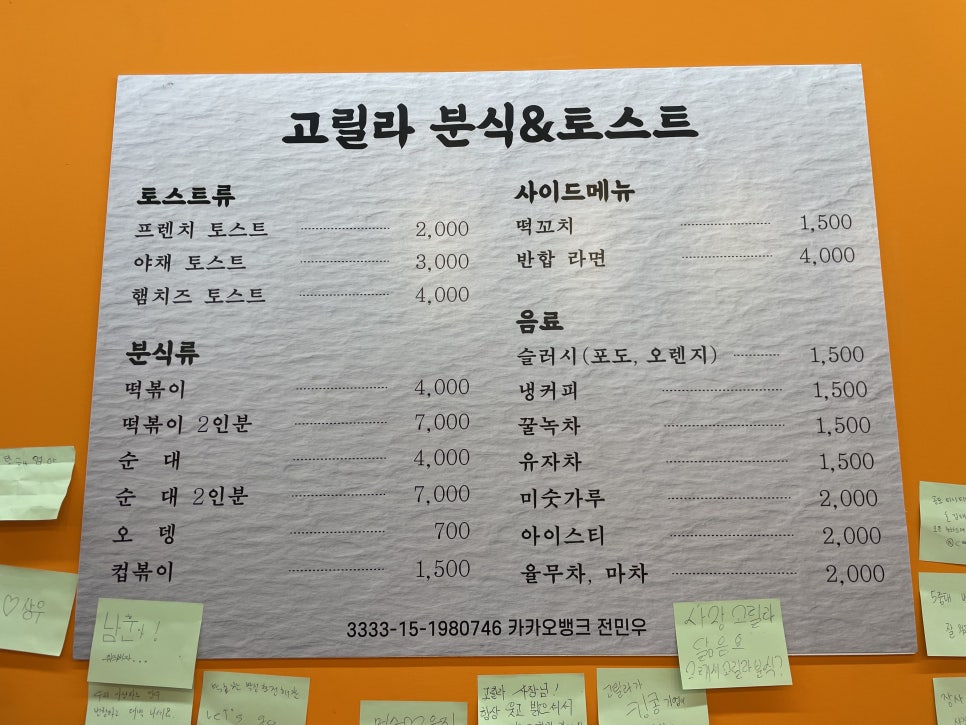 고릴라 분식&토스트
토스트류
프렌치 토스트 2,000
야채 토스트 3,000
햄치즈 토스트 4,000
분식류
떡볶이 4,000
떡볶이 2인분 7,000
순 대 4,000
순 대 2인분 7,000
오 뎅 700
컵볶이 1,500
사이드메뉴
떡꼬치 1,500
반합 라면 4,000
음료
슬러시(포도, 오렌지) 1,500
냉커피 1,500
꿀녹차 1,500
유자차 1,500
미숫가루 2,000
아이스티 2,000
율무차, 마차 2,000
3333-15-1980746 카카오뱅크 전민우
♡상우
사장 고릴라
닮은요
고릴라 사장님!
항상 웃고
고릴라가
킹콩